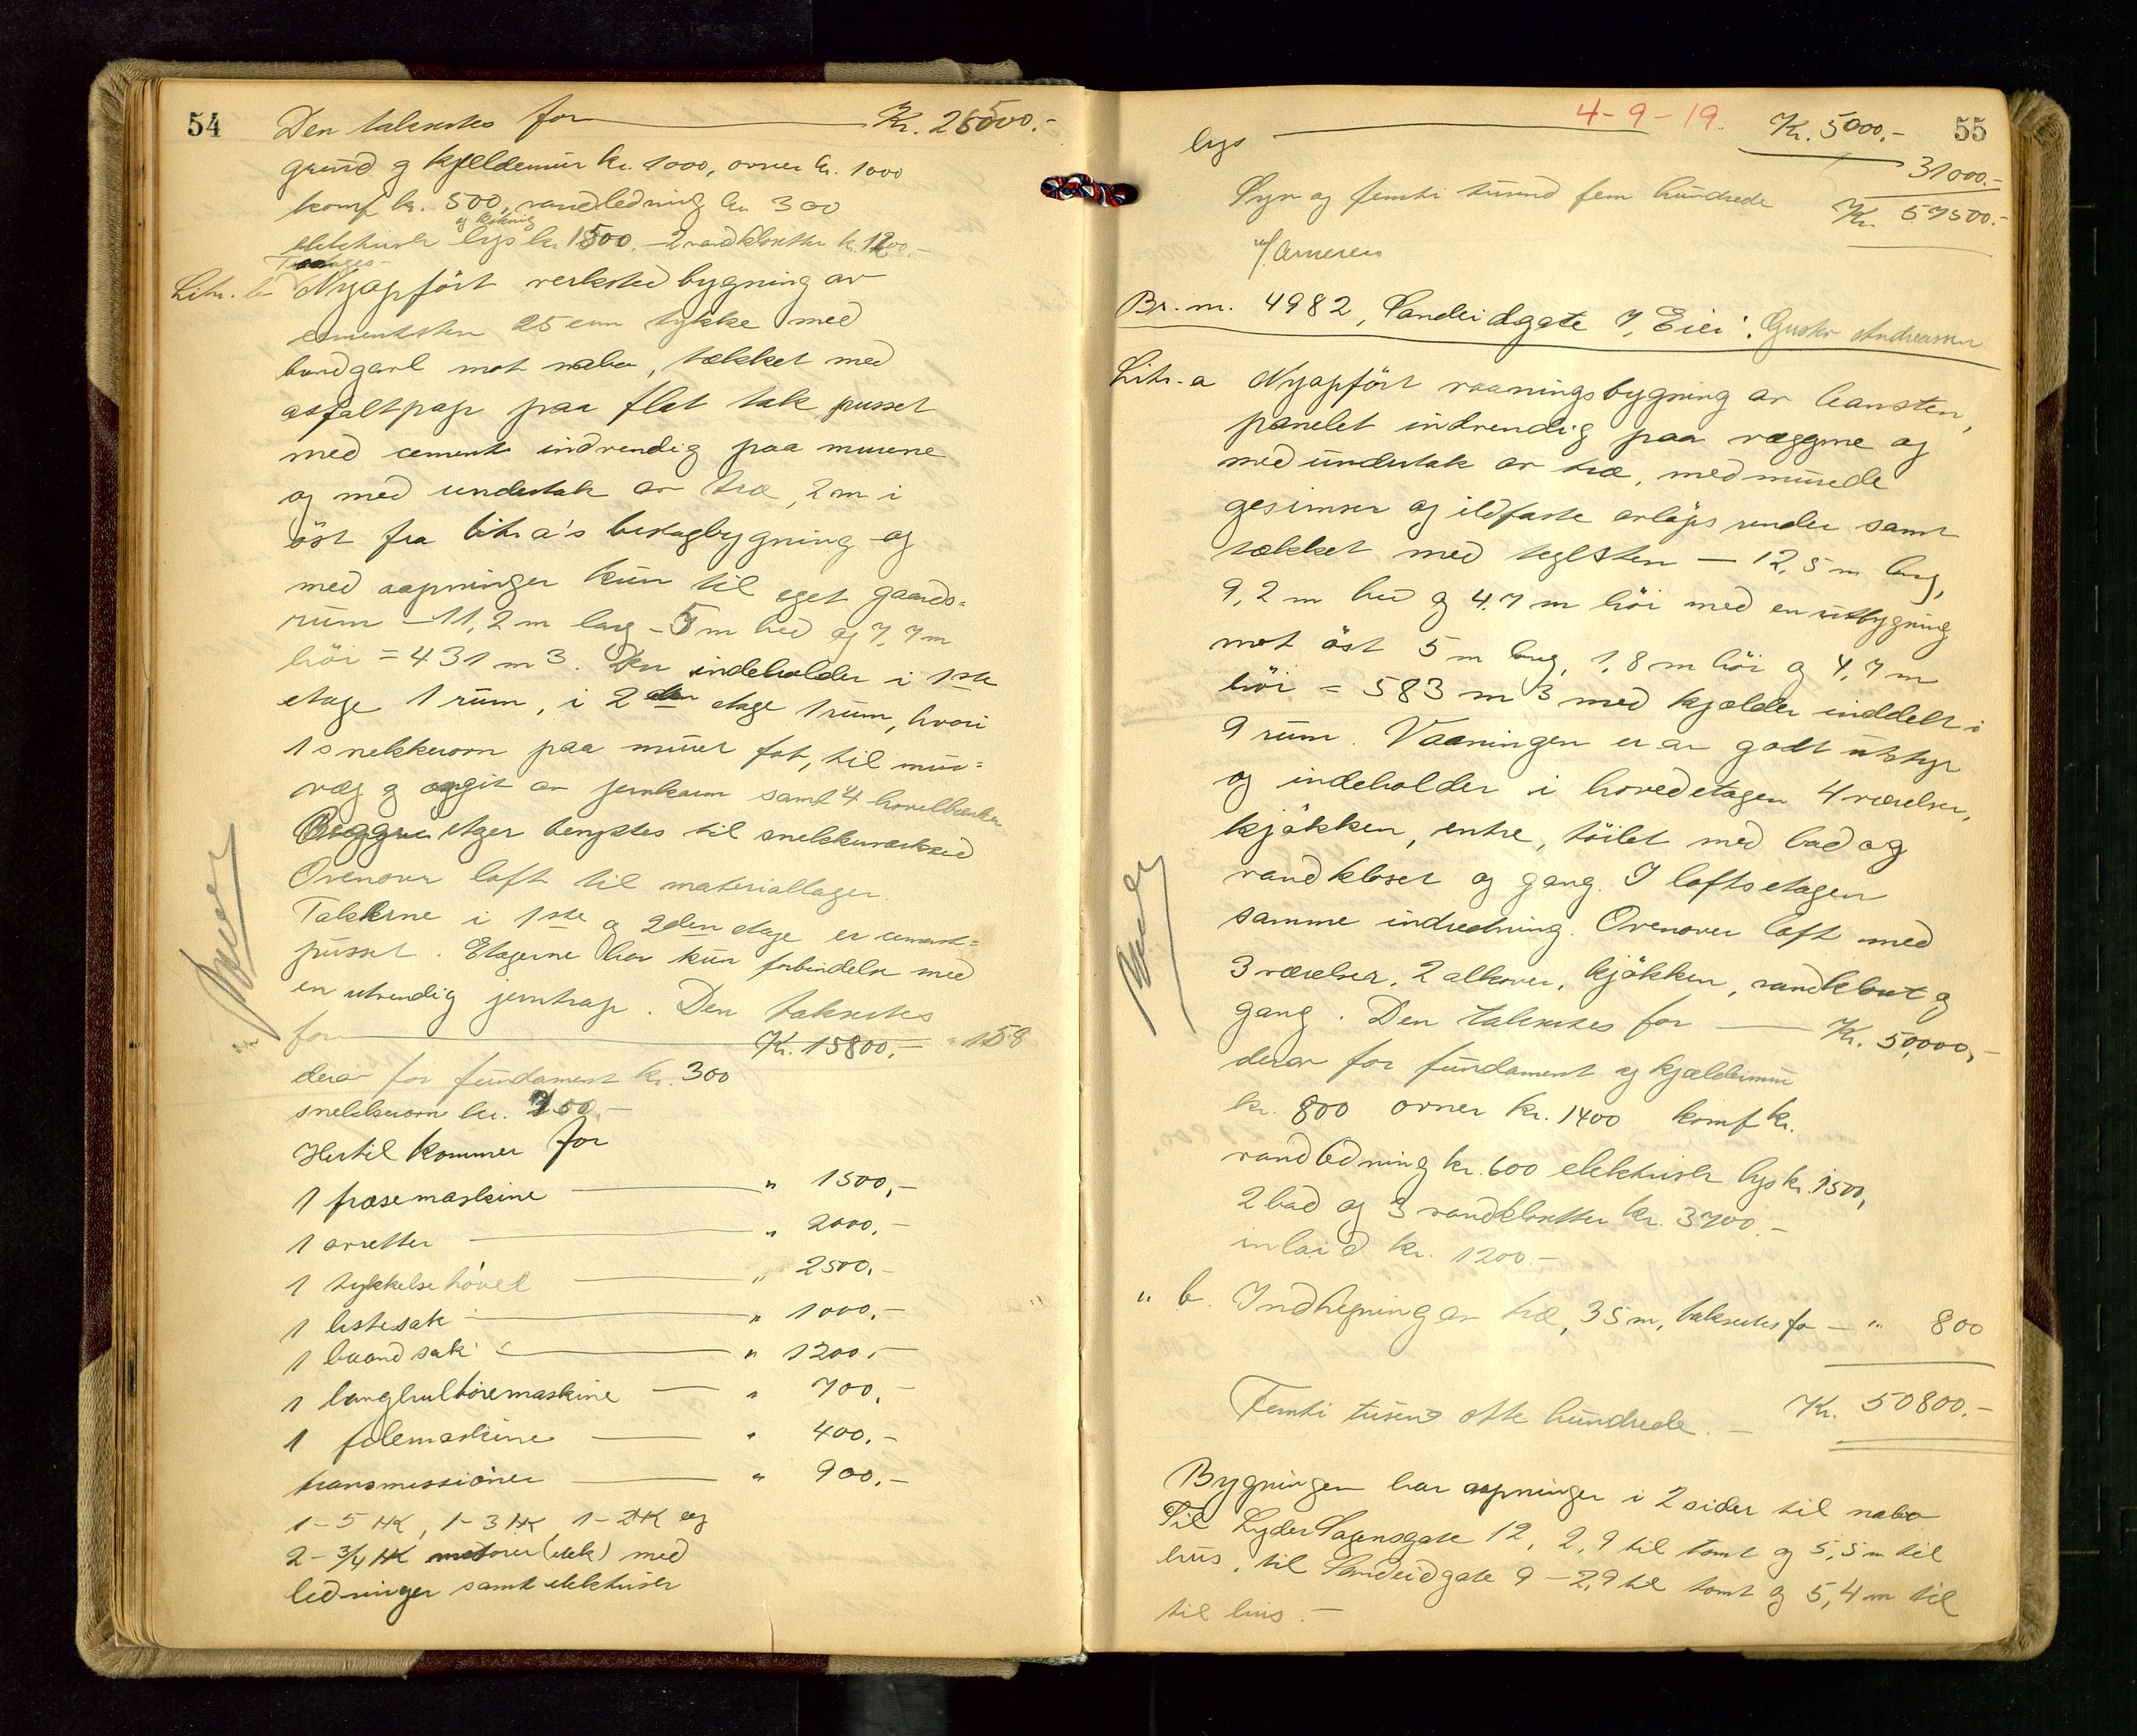 54
Den takseres for Kr. 26500.-
grund og kjelldermur kr. 1000, ovner kr. 1000
komf kr. 500, vandledning kr. 300
og kokning
elektrisk lys kr. 1500. - 2 vandklosetter kr. 1200.-
Litr. b Nyopført verksted bygning av
cementsten 25 cm tykke med
brandgavl mot nabo, tækket med
asfaltpap paa flat tak pusset
med cement indvendig paa murene
og med undertak av træ, 2 m i
öst fra litr a's beslagbygning og
med aapninger kun til eget gaards-
rum - 11,2 m lang - 5 m bred og 7,7 m
höi = 431 m3. Den indeholder i 1ste
etage 1 rum, i 2den etage 1 rum, hvori
1 snekkerovn paa muret fot, til mur-
væg og omgit av jernkarm samt 4 hovelbænker
Begge etager benyttes til snekkerverksted
Ovenover loft til materiallager.
Takene i 1ste og 2den etage er cement-
pusset. Etagerne har kun forbindelse med
en utvendig jerntrap. Den takseres
for Kr. 15800.- " 158
derav for fundament kr. 300
snekkerovn kr. 300.-
Hertil kommer for
1 fræsemaskine " 1500,-
1 avretter " 2000,-
1 tykkelse hövel " 2500,-
1 listesak " 1000,-
1 baandsak " 1200,-
1 langhulboremaskine " 700,-
1 filemaskine " 400,-
transmissioner " 900,-
1-5 HK, 1-3 HK, 1-2 HK og
2-3/4 HK motorer (elek) med
ledninger samt elektrisk
4-9-19.
55
lys Kr. 5000.-
31000.-
Syv og femti tusind fem hundrede Kr. 57500.-
Br. nr. 4982, Sandeidgate 7, Eier: Gustav Andreassen
Litr. a Nyopført vaaningsbygning av leansten,
panelet indvendig paa væggene og
med undertak av træ, med murede
gesimser og ildfaste avløps render samt
tækket med teglsten - 12,5 m lang,
9,2 m bred og 4,7 m höi med en utbygning
mot öst 5 m lang, 1,8 m höi og 4,7 m
höi = 583 m3 med kjælder inddelt i
9 rum. Vaaningen er av godt utstyr
og indeholder i hovedetagen 4 værelser,
kjökken, entre, töilet med bad og
vandkloset og gang. I loftsetagen
samme indredning. Ovenover loft med
3 værelser, 2 alkover, kjökken, vandkloset og
gang. Den takseres for Kr. 50,000,-
derav for fundament og kjældermur
kr. 800 ovner kr. 1400 komf kr.
vandledning kr. 600 elektrisk lys kr. 1500,
2 bad og 3 vandklosetter kr. 3700.-
inlaid kr. 1200.-
" b. Indhegning av træ, 35 m, takseres for - " 800
Femti tusend otte hundrede. - Kr. 50800.-
Bygningen har aapninger i 2 sider til nabo
Til Lyder Sagensgate 12, 2,9 til tomt og 5,5 m til
hus, til Sandeidgate 9 - 2,9 til tomt og 5,4 m til
til hus. -